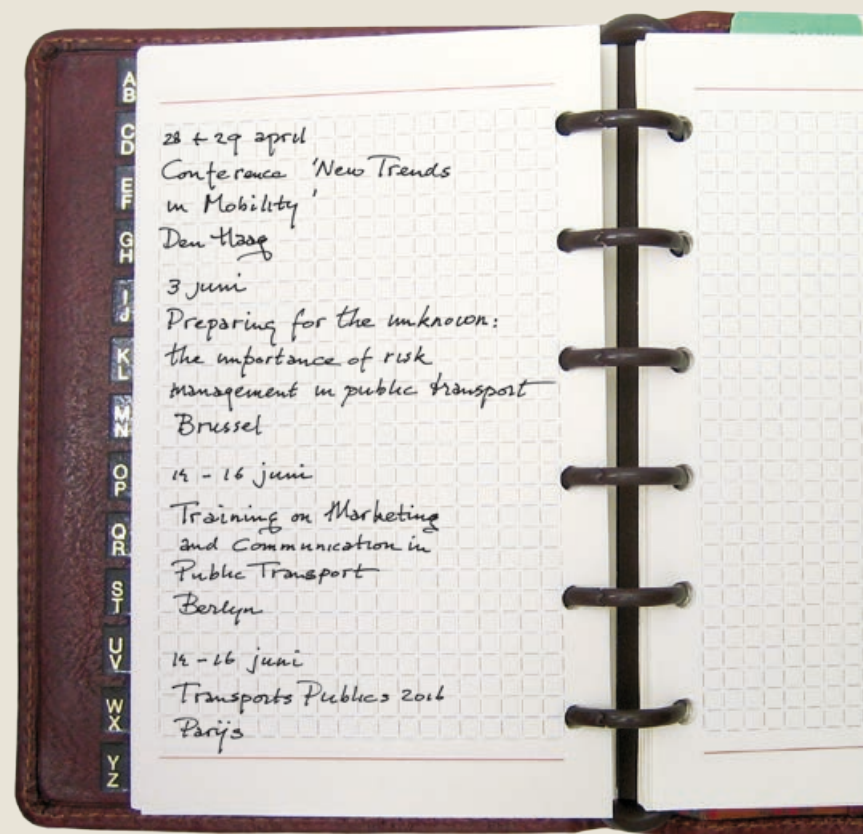 A
B
C
D
E
F
G
H
I
J
K
L
M
N
O
P
Q
R
S
T
U
V
W
X
Y
Z
28 + 29 april
Conference 'New Trends
in Mobility'
Den Haag
3 juni
Preparing for the unknown:
the importance of risk
management in public transport
Brussel
14 - 16 juni
Training on Marketing
and Communication in
Public Transport
Berlyn
14 - 16 juni
Transports Publics 2016
Parijs